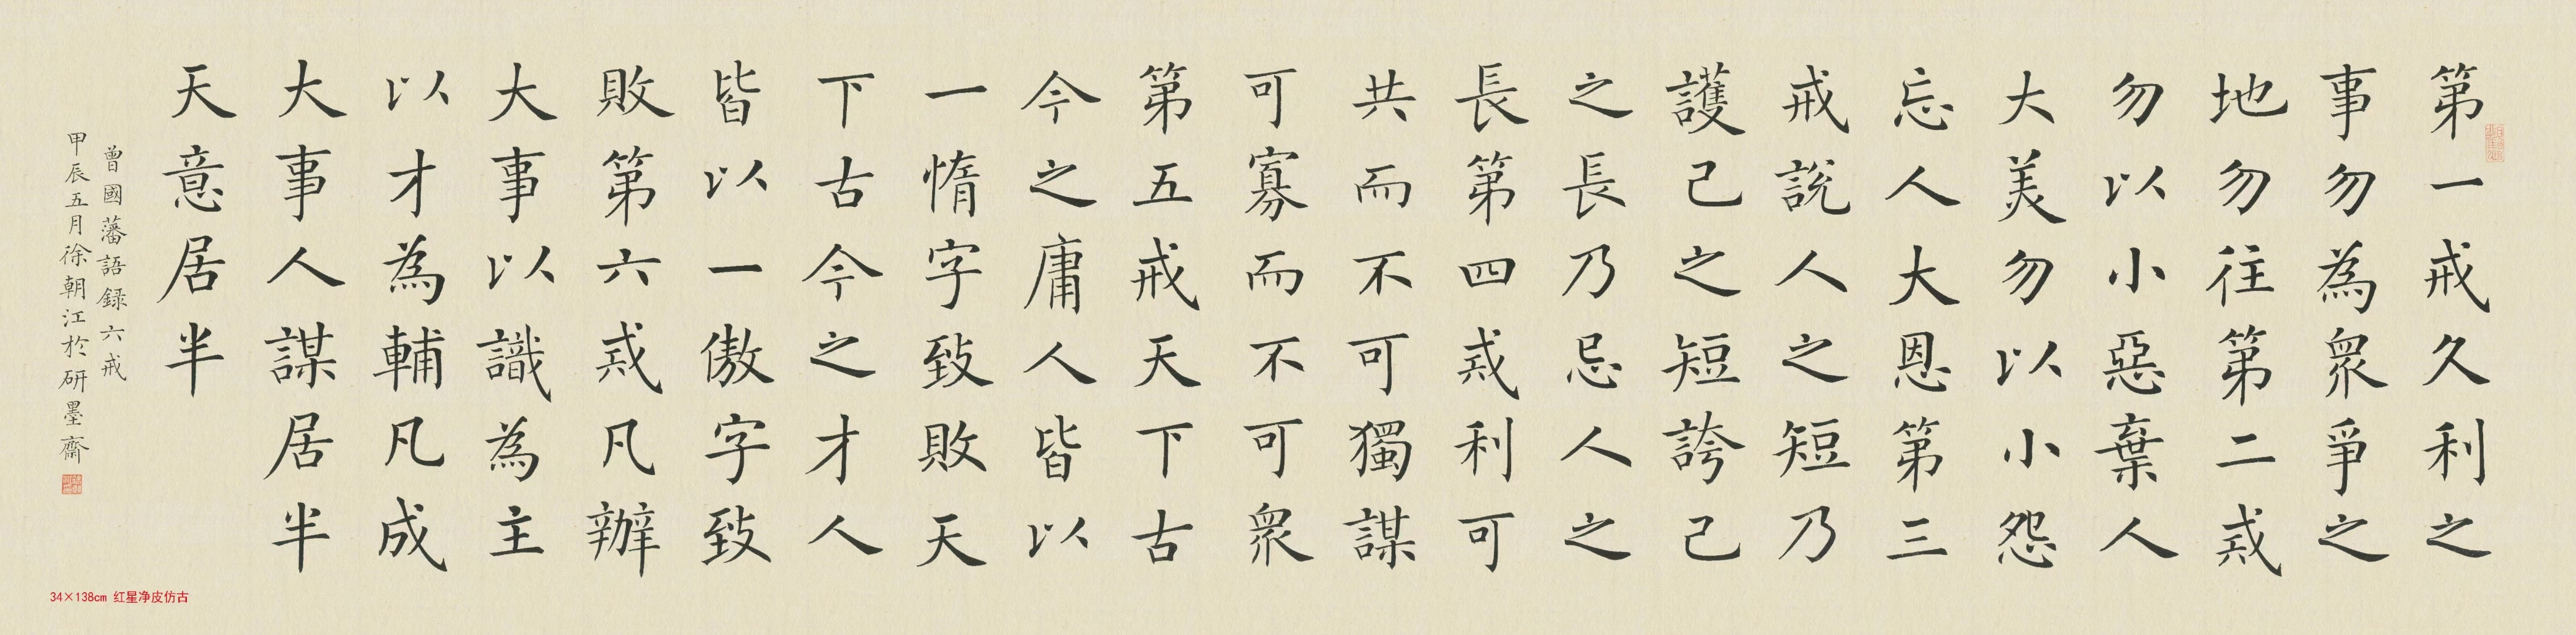 第一戒久利之
事勿為衆爭之
地勿往第二戒
勿以小惡棄人
大美勿以小怨
忘人大恩第三
戒說人之短乃
護己之短誇己
之長乃忌人之
長第四戒利可
共而不可獨謀
可寡而不可衆
第五戒天下古
今之庸人皆以
一惰字致敗天
下古今之才人
皆以一傲字致
敗第六戒凡辦
大事以識為主
以才為輔凡成
大事人謀居半
天意居半
曾國藩語録六戒
甲辰五月徐朝江於研墨齋
34×138cm 红星净皮仿古